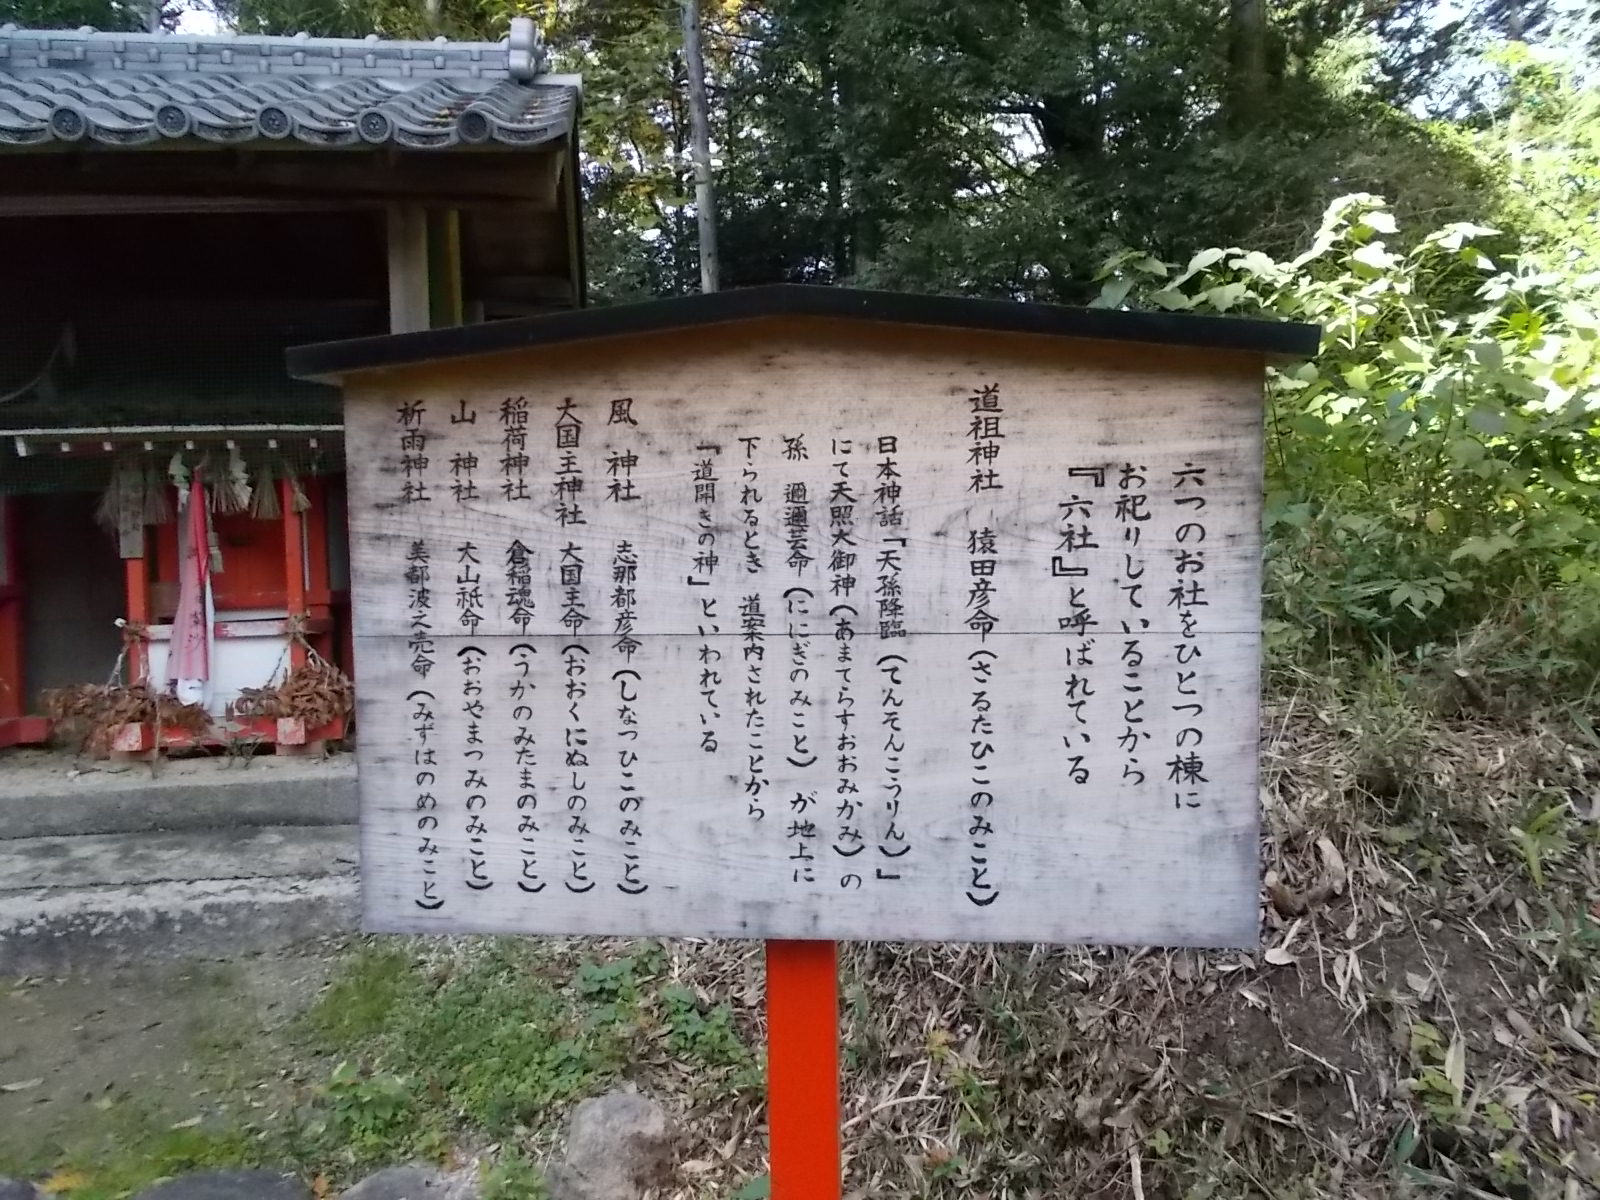 六つのお社をひとつの棟に
お祀りしていることから
『六社』と呼ばれている
道祖神社 猿田彦命(さるたひこのみこと)
日本神話「天孫降臨(てんそんこうりん)」
にて天照大御神(あまてらすおおみかみ)の
孫 邇邇芸命(ににぎのみこと)が地上に
下られるとき 道案内されたことから
「道開きの神」といわれている
風神社 志那都彦命(しなつひこのみこと)
大国主神社 大国主命(おおくにぬしのみこと)
稲荷神社 倉稲魂命(うかのみたまのみこと)
山神社 大山祇命(おおやまつみのみこと)
祈雨神社 美都波之売命(みずはのめのみこと)